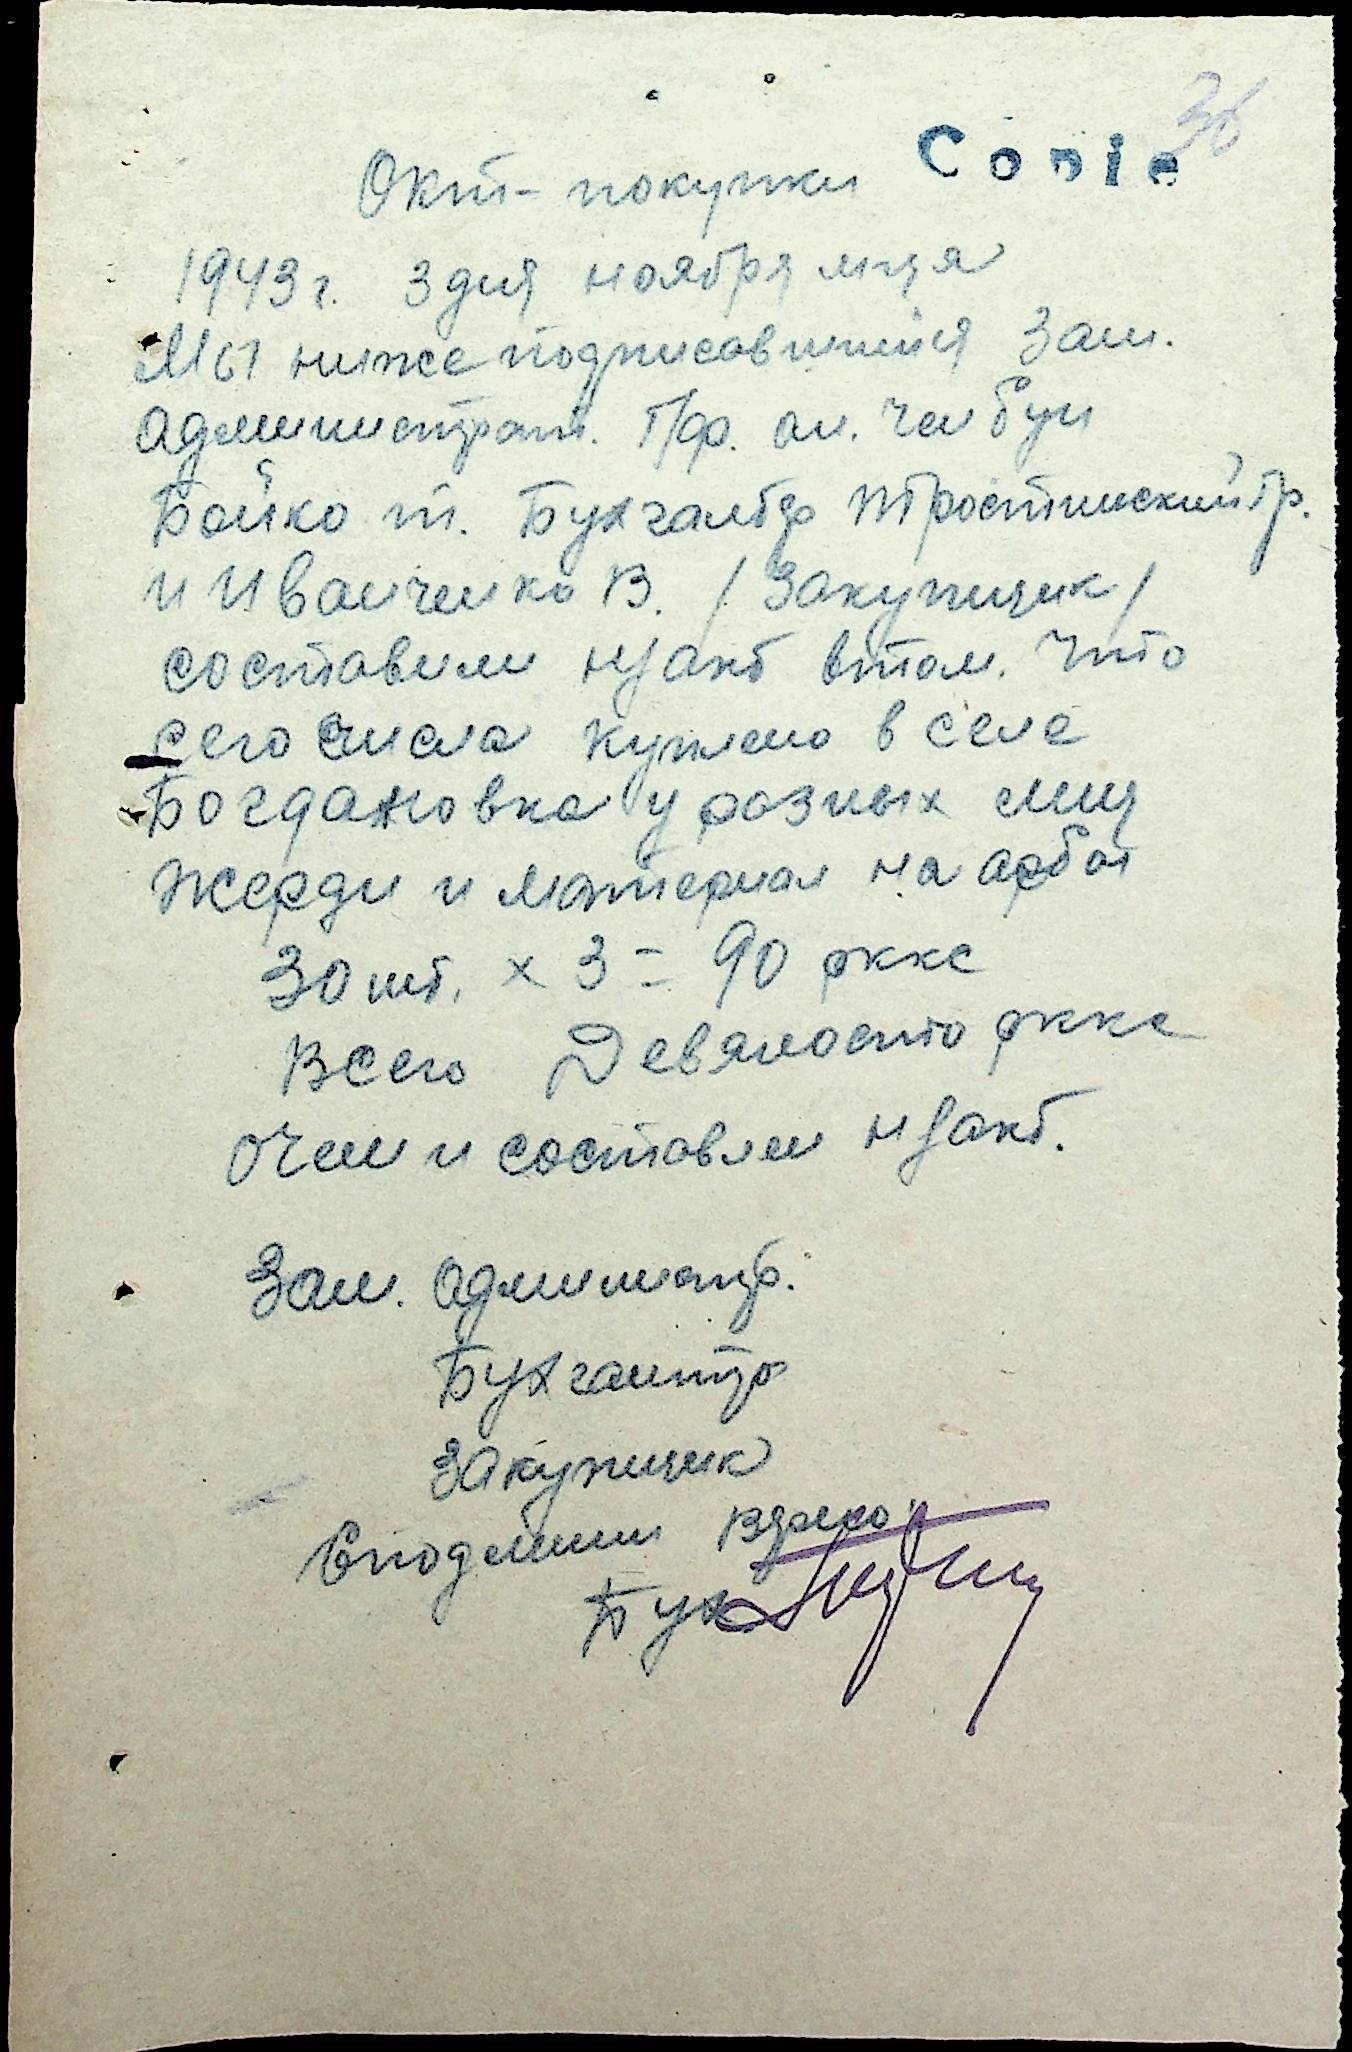 36
Copie
Окт-покупки
1943 г. 3 дня ноября м-ця
Мы нижеподписавшийся Зам.
администрат. Пф. ам.
Бойко т. Бухгалтр Тростинский Гр.
и Иванченко В. /Закупщик/
составили н/акт втом. Что
сего числа куплено в селе
Богдановка у разных лиц
жерди и материал на арбы
30 шт. х 3 = 90 рккс
Всего Девяносто рккс
очем и составлен н/акт.
Зам. администр.
Бухгалтр
Закупщик
Сподлинн верно:
Бух.